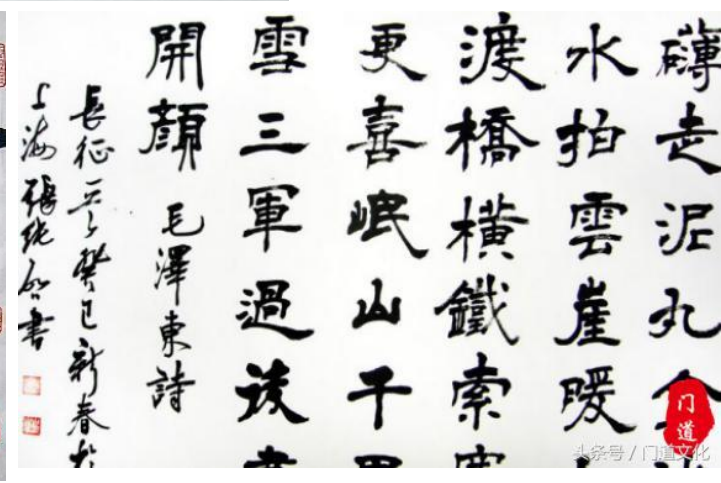 礴走泥丸金
水拍雲崖暖
渡橋橫鐵索寒
更喜岷山千里
雪三軍過後盡
開顏 毛澤東詩
長征癸巳新春於
上海張書
门道
头条号 / 门道文化